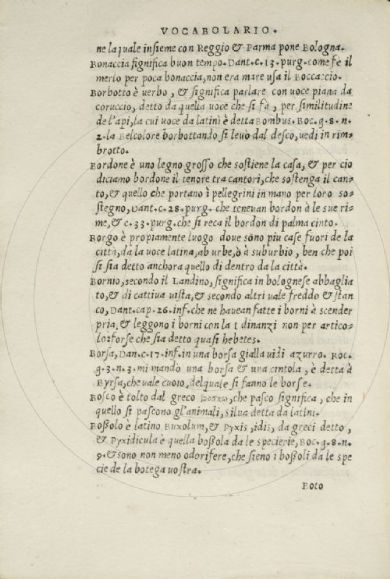 VOCABOLARIO.
ne la quale insieme con Reggio & Parma pone Bologna.
Bonaccia significa buon tempo. Dant. c. 13. purg. come fe il
merlo per poca bonaccia, non era mare usa il Boccaccio.
Borbotto è uerbo, & significa parlare con uoce piana da
coruccio, detto da quella uoce che si fà, per similitudine
de l'api, la cui uoce da latini è detta Bombus. Boc. g. 8. n.
2. la Belcolore borbottando si leuo dal desco, uedi in rim
brotto.
Bordone è uno legno grosso che sostiene la casa, & per cio
diciamo bordone il tenore tra cantori, che sostenga il can
to, & quello che portano i pellegrini in mano per loro so
stegno, Dant. c. 28. purg. che teneuan bordon à le sue ri
me, & c. 33. purg. che si reca il bordon di palma cinto.
Borgo è propiamente luogo doue sono piu case fuori de la
città, da la uoce latina, ab urbe, ò suburbio, ben che poi
si sia detto anchora quello di dentro da la città.
Bornio, secondo il Landino, significa in bolognese abbaglia
to, & di cattiua uista, & secondo altri uale freddo & stan
co, Dant. cap. 26. inf. che ne hauean fatte i borni à scender
pria, & leggono i borni con la i dinanzi non per artico-
lo: forse che sia detto quasi hebetes.
Borsa, Dan. c. 17. inf. in una borsa gialla uidi azurro. Boc.
g. 3. n. 3. mi mando una borsa & una cintola, è detta à
Byrsa, che uale cuoio, del quale si fanno le borse.
Bosco è tolto dal greco βοσκω, che pasco significa, che in
quello si pascono gl'animali, silua detta da latini.
Bossolo è latino Buxolum, & Pyxis, idis, da greci detto,
& Pyxidicula è quella bossola da le specierie, Boc. g. 8. n.
9. & sono non meno odorifere, che sieno i bossoli da le spe
cie de la botega uostra.
Boto